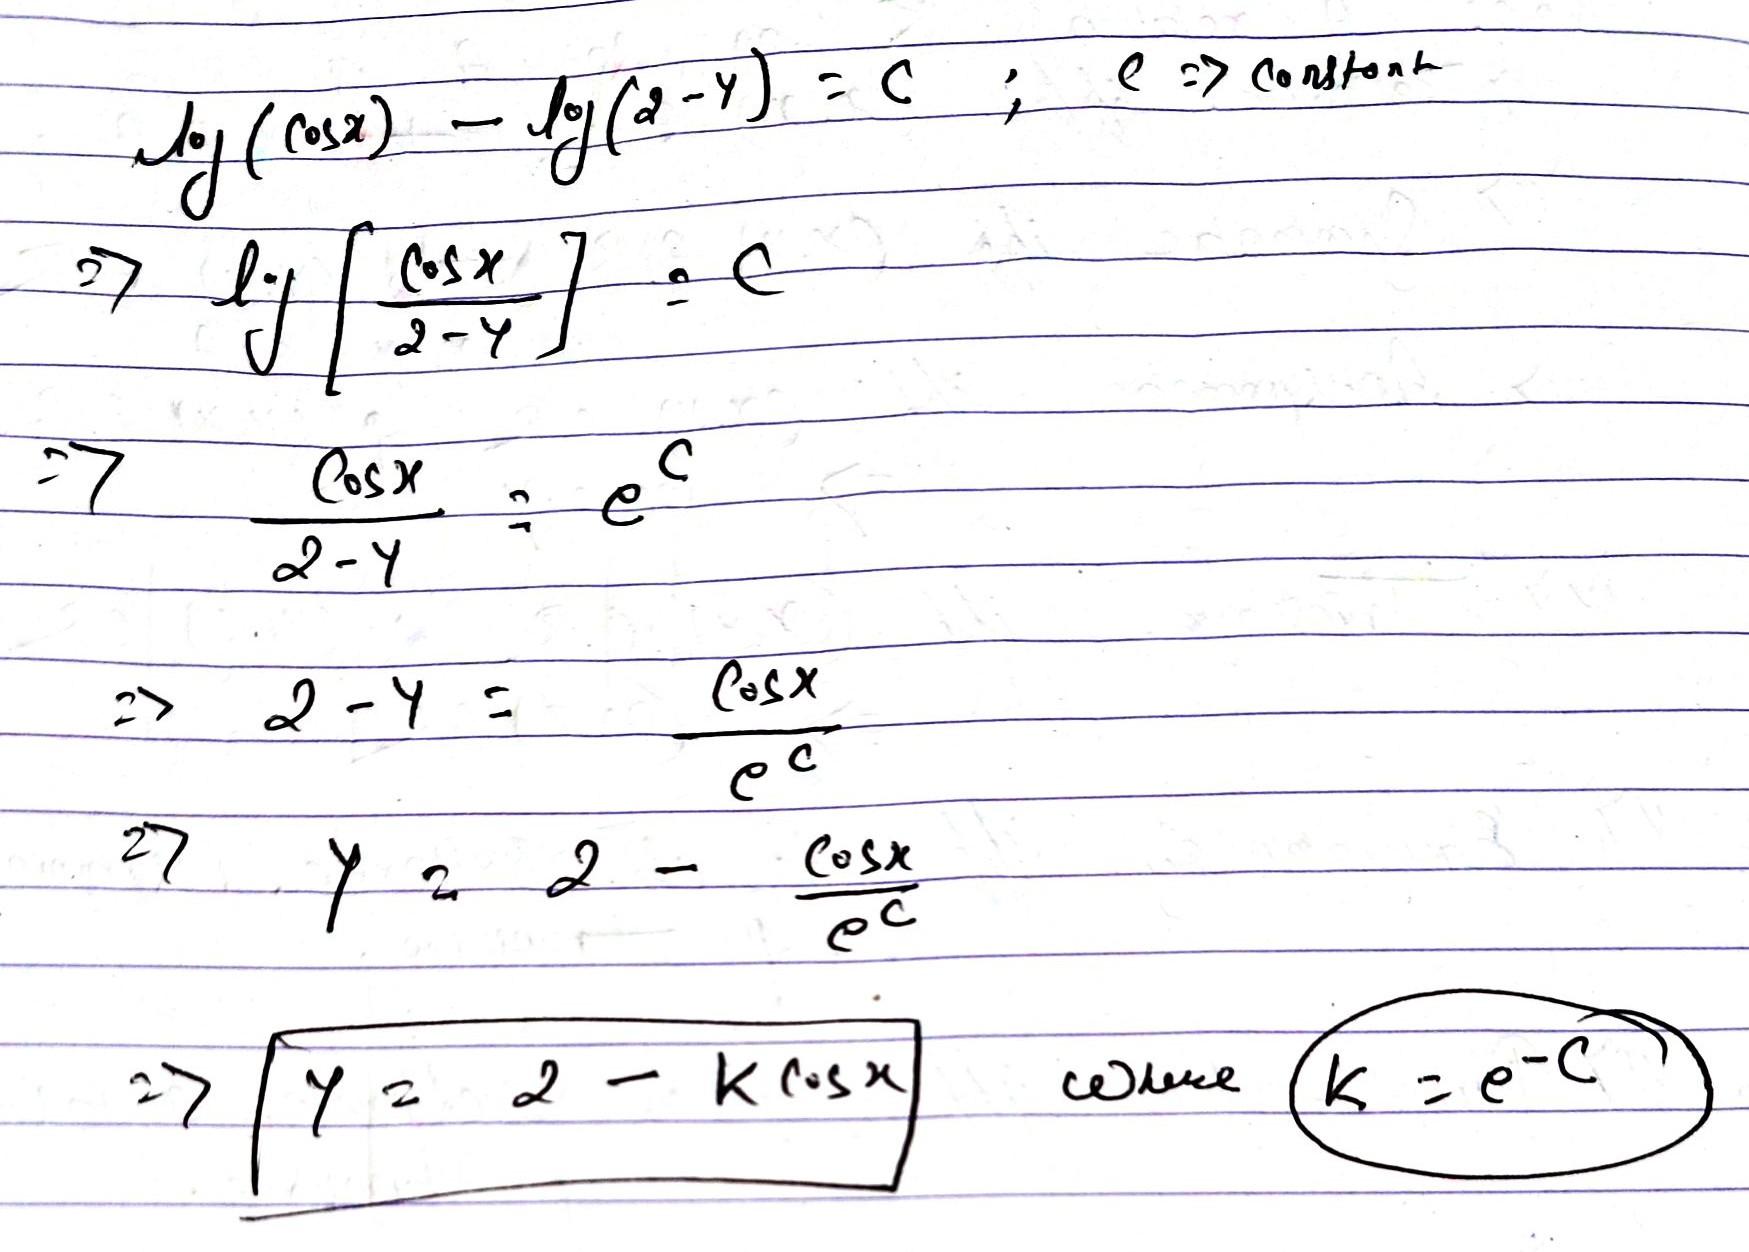 log(cosx) - log(2-y) = C ; C => constant
=> log [cosx / 2-y] = C
=> cosx / 2-y = e^C
=> 2-y = cosx / e^C
=> y = 2 - cosx / e^C
=> y = 2 - K cosx where K = e^-C